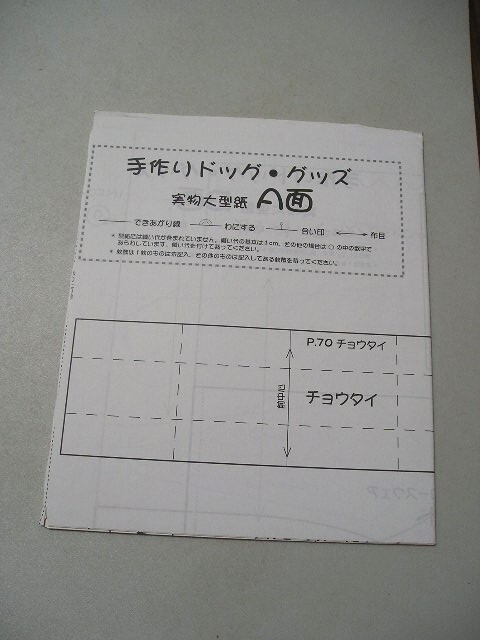 手作りドッグ・グッズ
実物大型紙 A面
できあがり線 わにする 合い印 布目
＊型紙には縫い代が含まれていません。縫い代の基本は1cm、その他の場合は○の中の数字で
あらわしています。縫い代を付けてあってください。
＊枚数は1枚のものは未記入、その他のものは記入してある枚数を裁ってください。
P.70 チョウタイ
チョウタイ